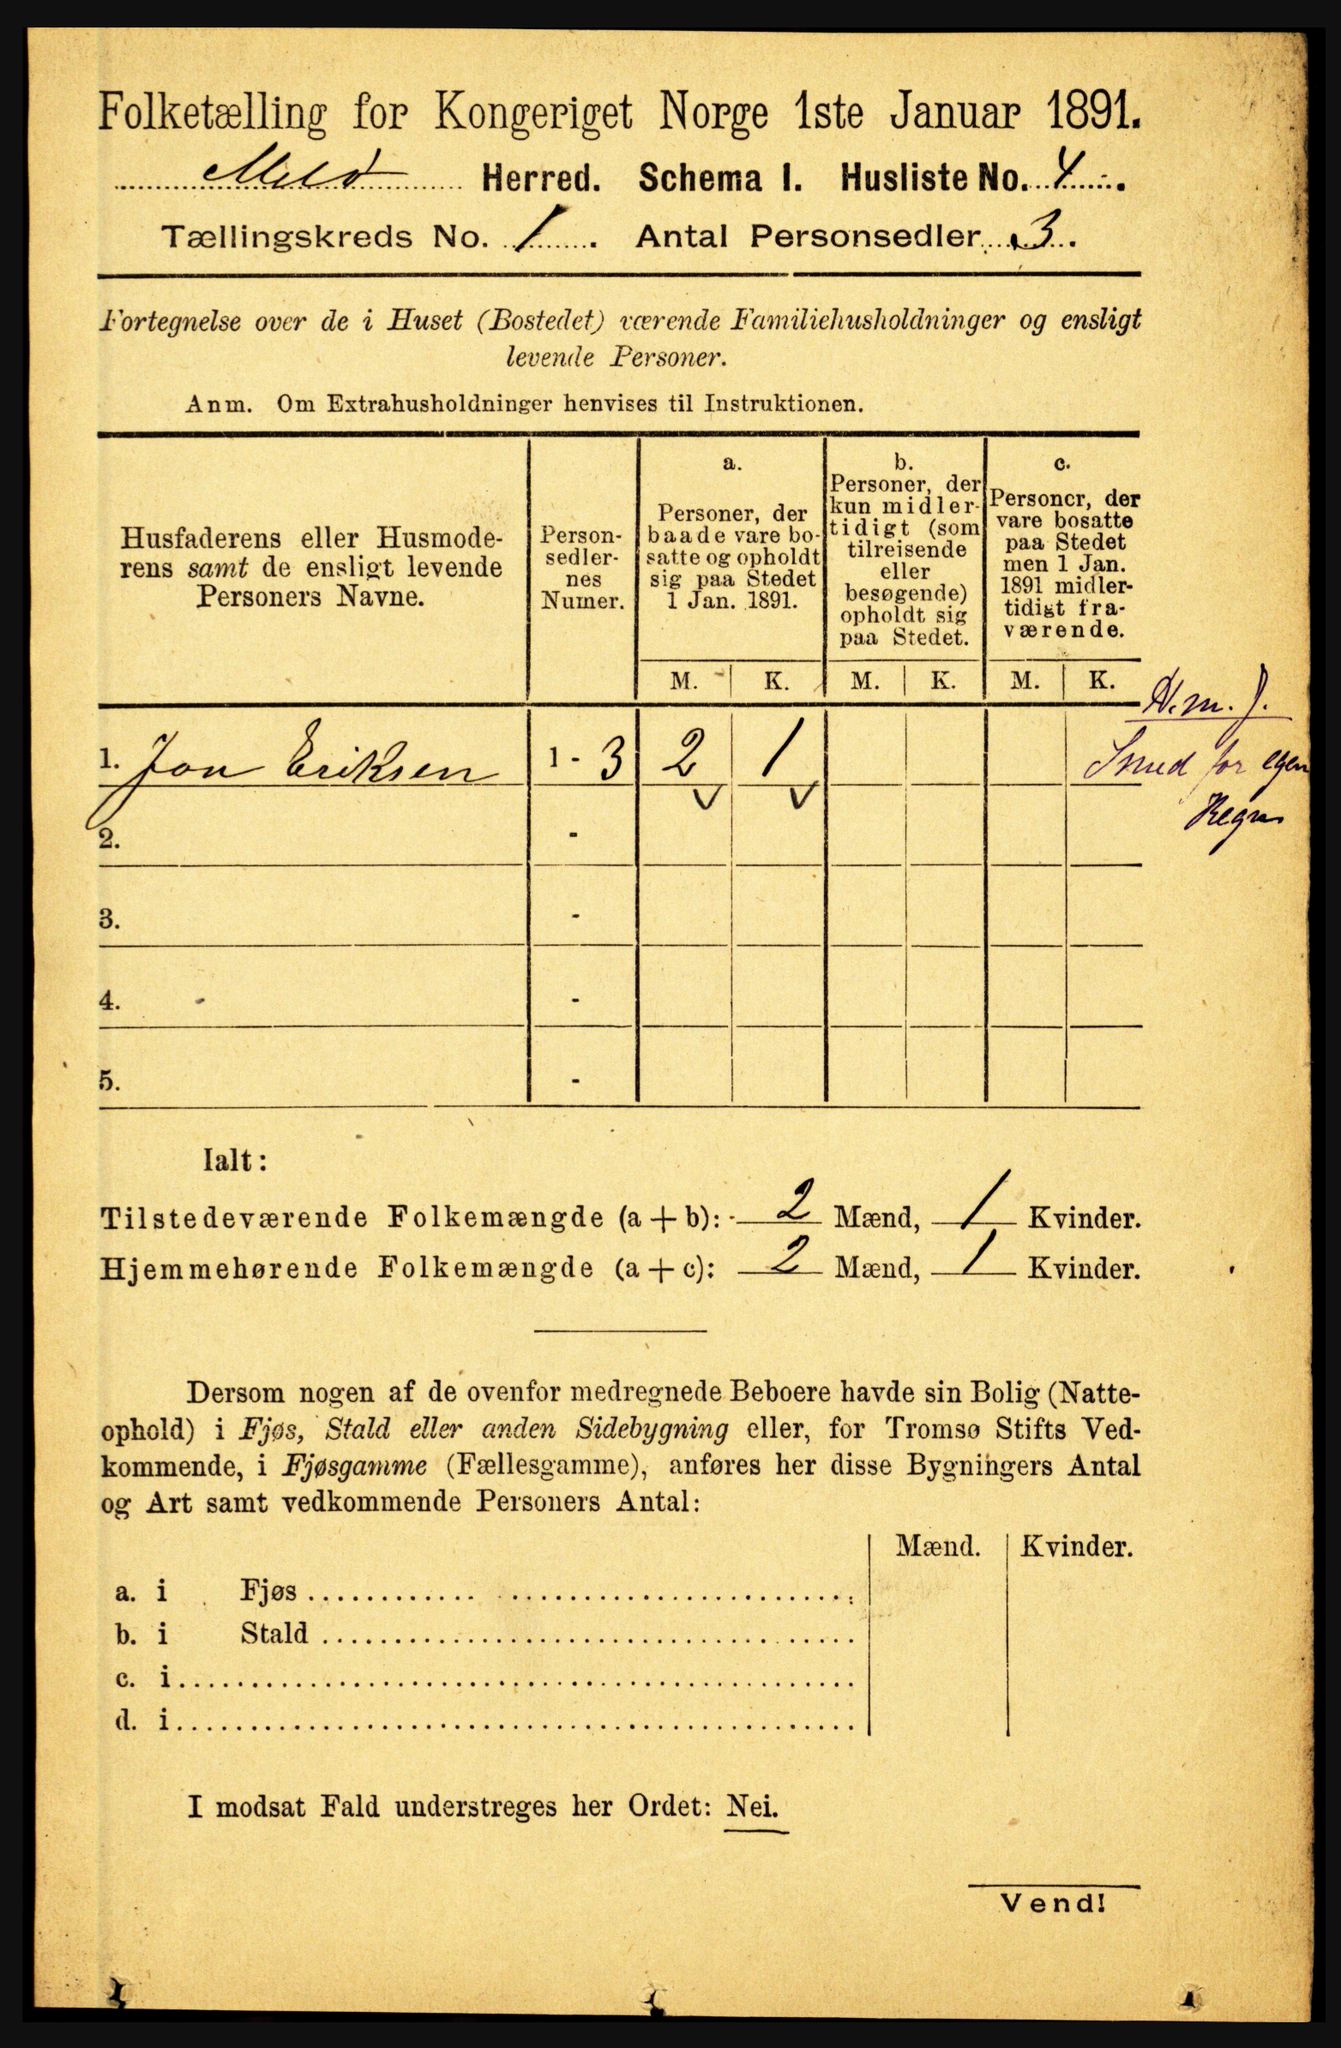 Folketælling for Kongeriget Norge 1ste Januar 1891.
Herred. Schema I. Husliste No. 4.
Tællingskreds No. 1. Antal Personsedler 3.
Fortegnelse over de i Huset (Bostedet) værende Familiehusholdninger og ensligt
levende Personer.
Anm. Om Extrahusholdninger henvises til Instruktionen.
Husfaderens eller Husmode-
rens samt de ensligt levende
Personers Navne.
Person-
sedler-
nes
Numer.
a.
Personer, der
baade vare bo-
satte og opholdt
sig paa Stedet
1 Jan. 1891.
b.
Personer, der
kun midler-
tidigt (som
tilreisende
eller
besøgende)
opholdt sig
paa Stedet.
c.
Personer, der
vare bosatte
paa Stedet
men 1 Jan.
1891 midler-
tidigt fra-
værende.
M. K. M. K. M. K.
1. Jon Eriksen 1 - 3 2 1
Smed for egen
Regn
2. -
3. -
4. -
5. -
Ialt:
Tilstedeværende Folkemængde (a + b): 2 Mænd, 1 Kvinder.
Hjemmehørende Folkemængde (a + c): 2 Mænd, 1 Kvinder.
Dersom nogen af de ovenfor medregnede Beboere havde sin Bolig (Natte-
ophold) i Fjøs, Stald eller anden Sidebygning eller, for Tromsø Stifts Ved-
kommende, i Fjøsgamme (Fællesgamme), anføres her disse Bygningers Antal
og Art samt vedkommende Personers Antal:
Mænd. Kvinder.
a. i Fjøs
b. i Stald
c. i
d. i
I modsat Fald understreges her Ordet: Nei.
Vend!